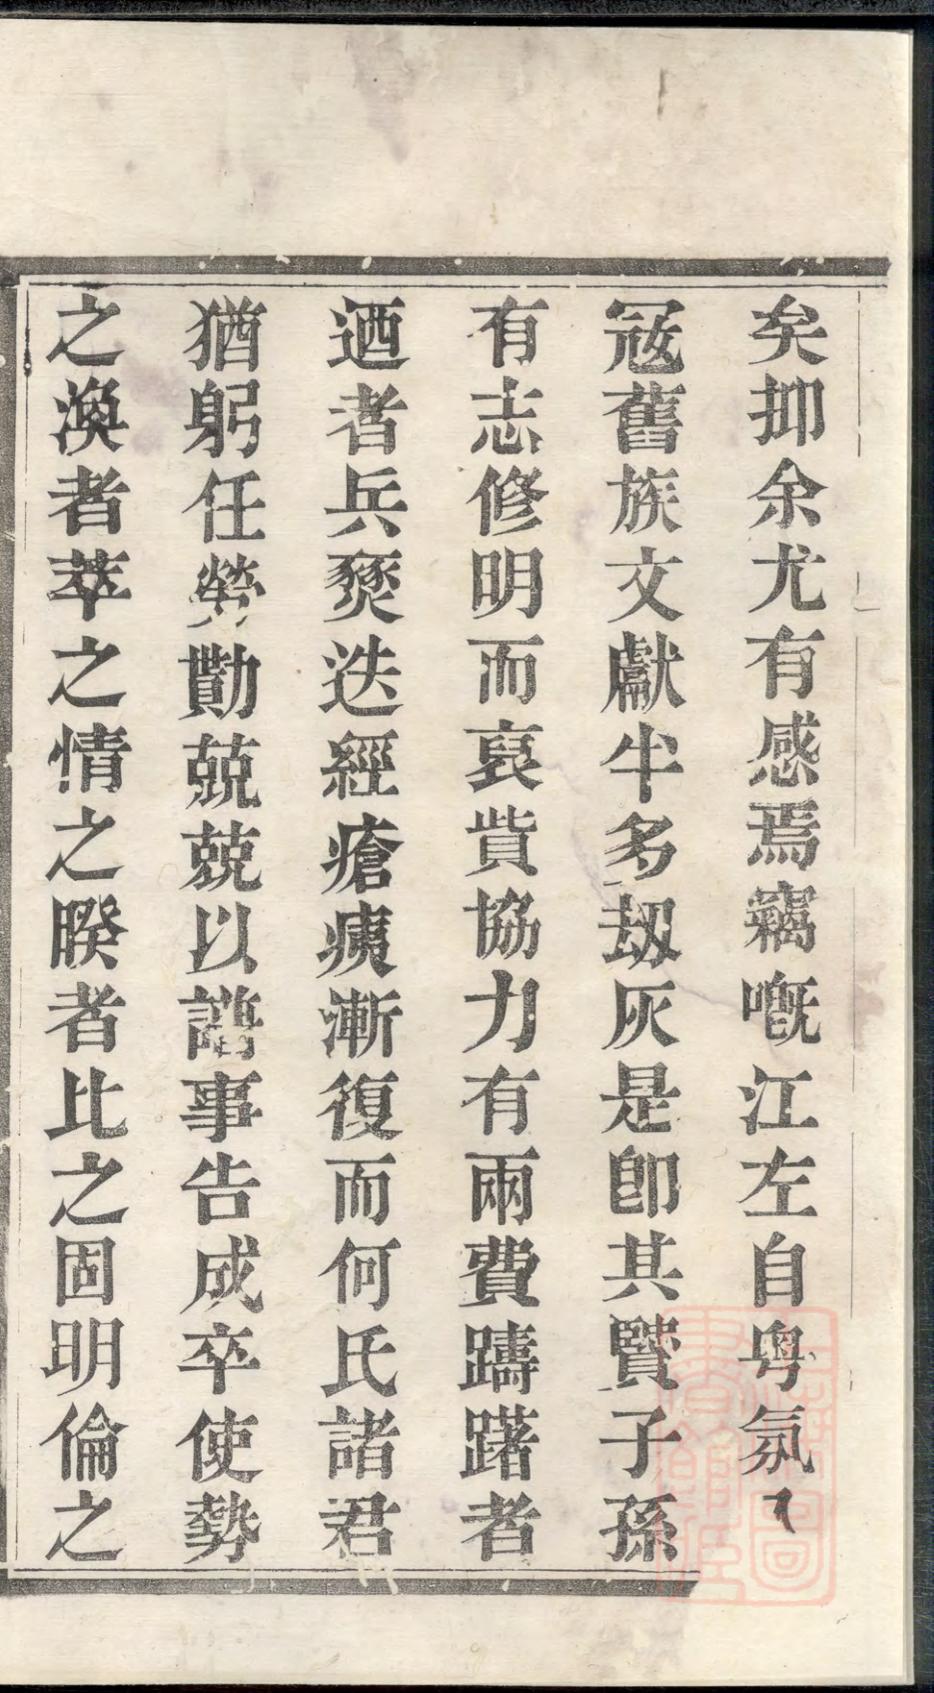 矣抑余尤有感焉竊嘅江左自粤氛
冦舊族文獻半多刼灰是卽其賢子孫
有志修明而裒貲協力有兩費躊躇者
迺者兵燹迭經瘡痍漸復而何氏諸君
猶躬任勞勩兢兢以譜事告成卒使勢
之渙者萃之情之暌者比之固明倫之